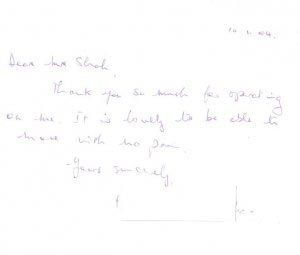 Dear Mr Shah,
Thank you so much for operating
on me. It is lovely to be able to
move with no pain.
Yours sincerely,